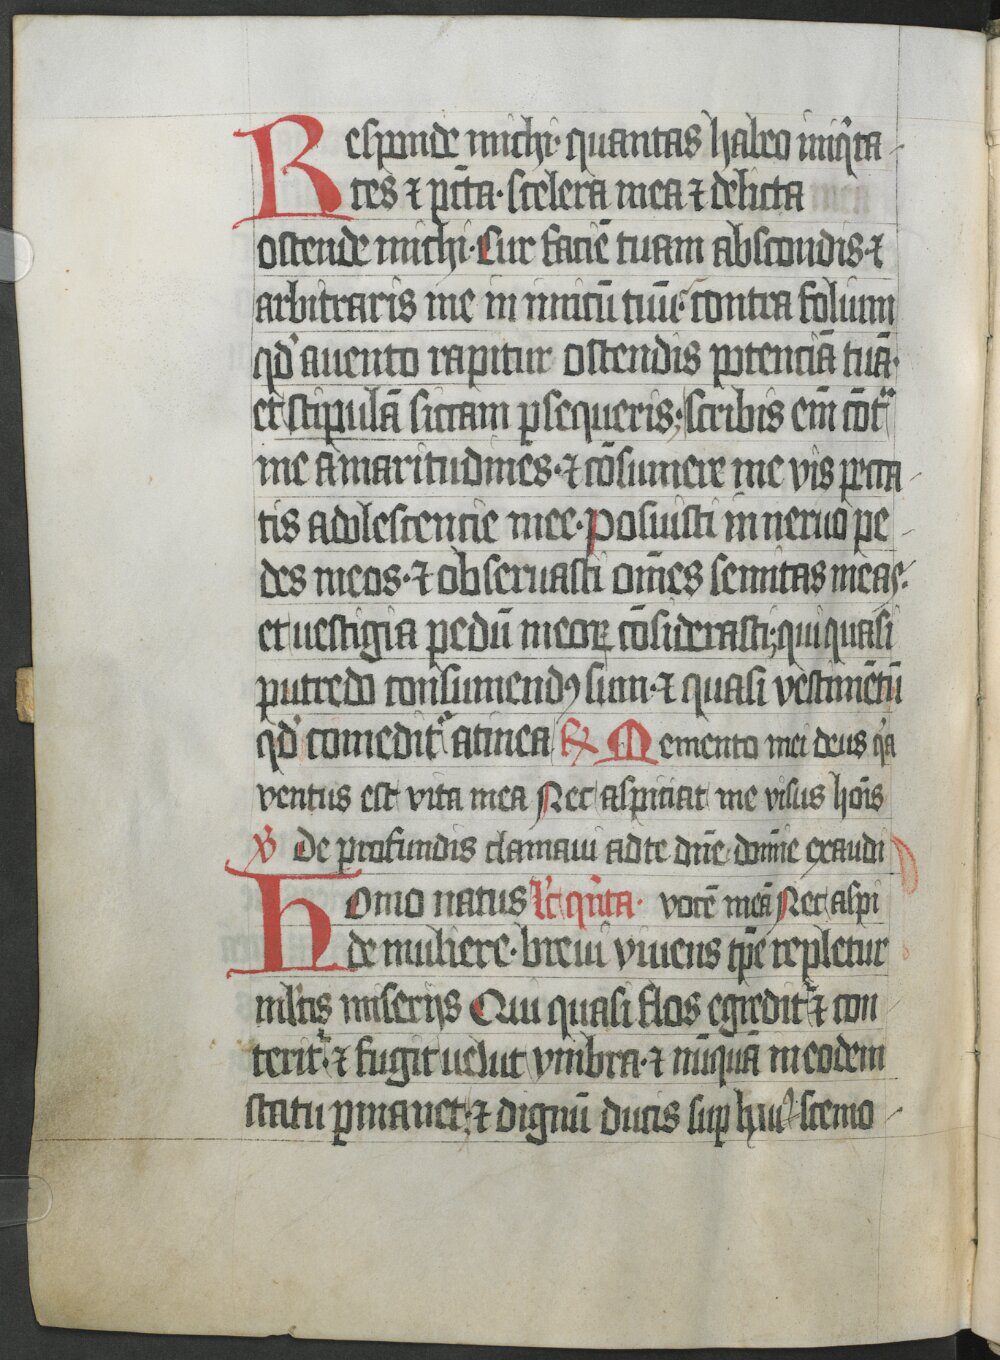 Responde michi· quantas habeo iniq̾ta-
tes ⁊ pc̄ta· scelera mea ⁊ delicta
ostende michi· Cur faciē tuam abscondis·⁊
arbitraris me inimicū tuū· contra folium
qd̾ auento rapitur ostendis potenciā tuā·
et stipulā siccam ꝑsequeris; scribis em̄ cōtᵃ
me amaritudines·⁊ cōsumere me vis pecca-
tis adolescentie mee· Posuisti in neruo pe-
des meos·⁊ obseruasti om̄es semitas meas·
et uestigia pedū meoꝝ cōsiderasti; qui quasi
putredo consumendꝰ sum·⁊ quasi vestimētū
qd̾ comedit᷑ atinea ℟ Memento mei deus q̾a
ventus est vita mea Nec aspiciat me visus hoīs
℣ De profundis clamaui ad te dn̄e domine exaudi
Homo natus Lc̄ qn̄ta· vocē meā Nec aspi
de muliere· breui viuens tp̄e repletur
ml̾tis miserijs Qui quasi flos egredit᷑ ⁊ con
terit᷑ ⁊ fugit uelut vmbra·⁊ nūquā in eodem
statu ꝑmanet;⁊ dignū ducis suꝑ huiꝰscemo-